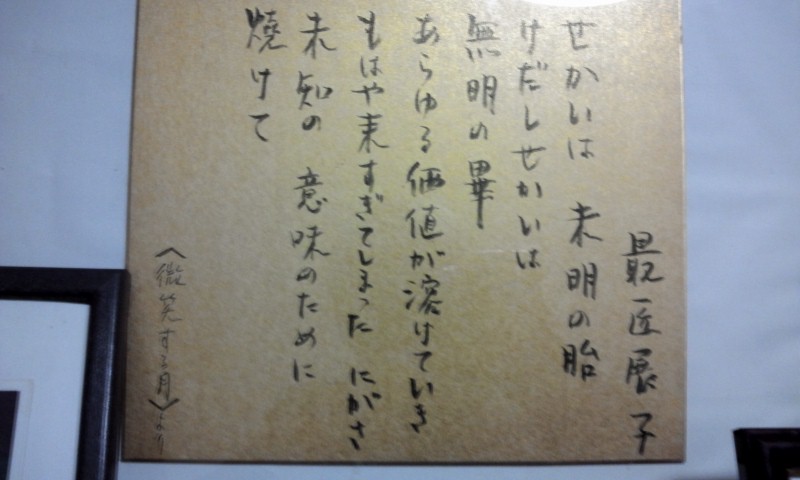 最匠展子
せかいは 未明の胎
けだしせかいは
無明の畢
あらゆる価値が溶けていき
もはや来すぎてしまった にがさ
未知の 意味のために
焼けて
〈微笑する月〉より